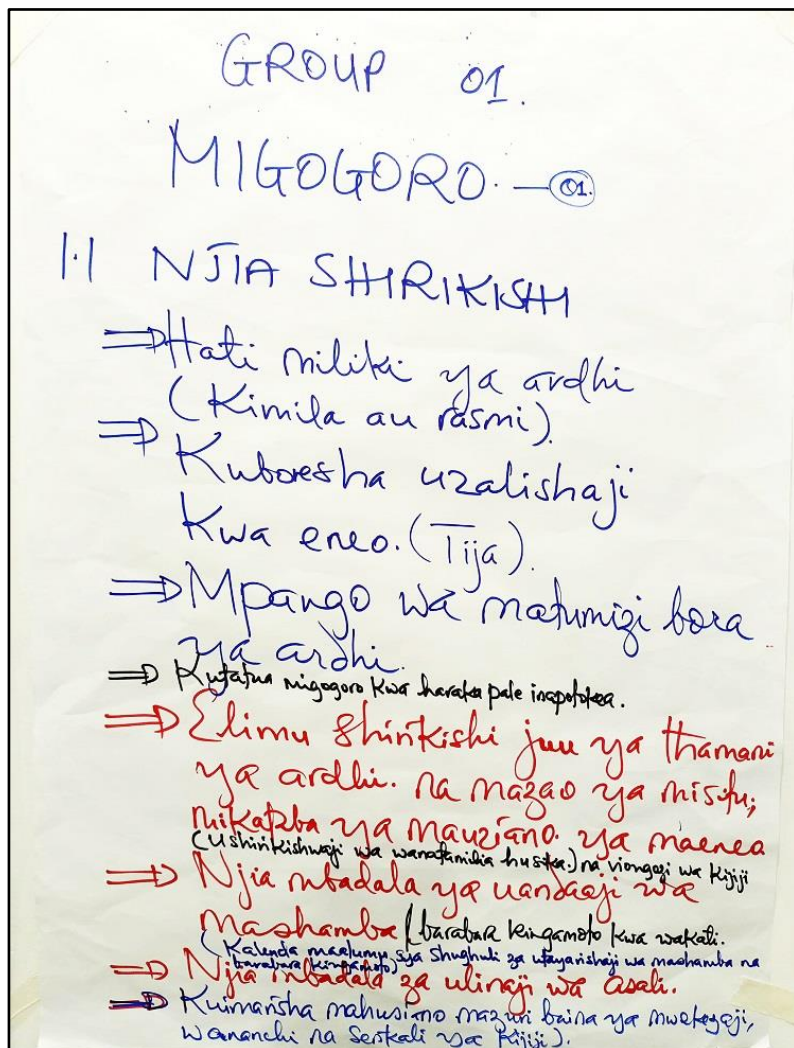 GROUP 01.
MIGOGORO. — 01.
1.1 NJIA SHIRIKISHI
⇒ Hati miliki ya ardhi
(Kimila au rasmi).
⇒ Kuboresha uzalishaji
Kwa eneo. (Tija).
⇒ Mpango wa matumizi bora
ya ardhi.
⇒ Kutatua migogoro kwa haraka pale inapotokea.
⇒ Elimu shirikishi juu ya thamani
ya ardhi. na mazao ya misitu,
mikataba ya mauziano ya maeneo
(Ushirikishwaji wa wanafamilia husika.) na viongozi wa Kijiji
⇒ Njia mbadala ya uandaaji wa
mashamba / barabara kingamoto kwa wakati.
(Kalenda maalumu ya shughuli za utayarishaji wa mashamba na
barabara kingamoto)
⇒ Njia mbadala za ulinaji wa asali.
⇒ Kuimarisha mahusiano mazuri baina ya mwekezaji,
wananchi na Serikali ya Kijiji).